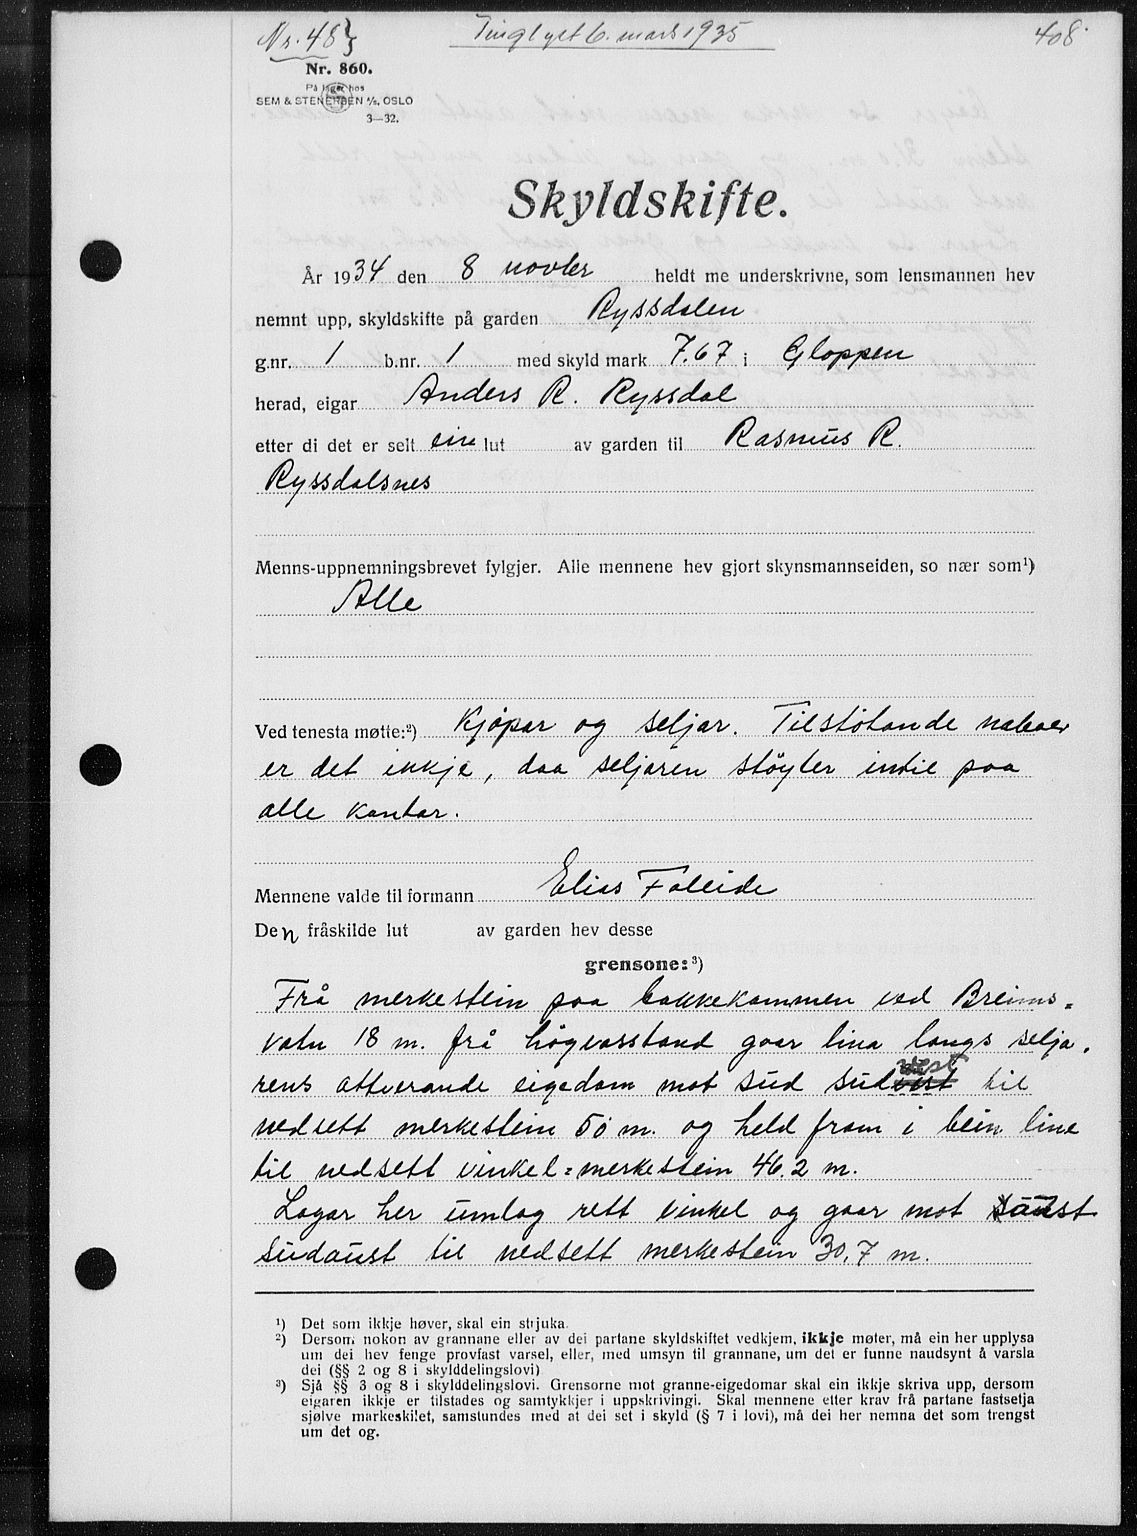 Nr. 483
Tinglyst 6. mars 1935
408
Nr. 860.
På lager hos
SEM & STENERSEN A/S, OSLO
3—32.
Skyldskifte.
År 1934 den 8 novbr heldt me underskrivne, som lensmannen hev
nemnt upp, skyldskifte på garden Ryssdalen
g.nr. 1 b.nr. 1 med skyld mark 7.67 i Gloppen
herad, eigar Anders R. Ryssdal
etter di det er selt ein lut av garden til Rasmus R.
Ryssdalsnes
Menns-uppnemningsbrevet fylgjer. Alle mennene hev gjort skynsmannseiden, so nær som¹)
Alle
Ved tenesta møtte:²) Kjöpar og seljar. Tilstötande naboer
er det inkje, daa seljaren stöyter intil paa
alle kantar.
Mennene valde til formann Elias Faleide
Den fråskilde lut av garden hev desse
grensone:³)
Frå merkestein paa bakkekammen ved Breims=
vatn 18 m. frå högvasstand gaar lina langs selja.
rens attverande eigedom mot sud sudvest til
nedsett merkestein 50 m. og held fram i bein line
til nedsett vinkel=merkestein 46.2 m.
Lagar her umlag rett vinkel og gaar mot saust
sudaust til nedsett merkestein 30,7 m.
¹) Det som ikkje høver, skal ein strjuka.
²) Dersom nokon av grannane eller av dei partane skyldskiftet vedkjem, ikkje møter, må ein her upplysa
um dei hev fenge provfast varsel, eller, med umsyn til grannane, um det er funne naudsynt å varsla
dei (§§ 2 og 8 i skylddelingslovi)
³) Sjå §§ 3 og 8 i skylddelingslovi. Grensorne mot granne-eigedomar skal ein ikkje skriva upp, dersom
eigaren ikkje er tilstades og samtykkjer i uppskrivingi. Skal mennene etter krav frå partane fastsetja
sjølve markeskilet, samstundes med at dei set i skyld (§ 7 i lovi), må dei her nemna det som trengst
um det og.